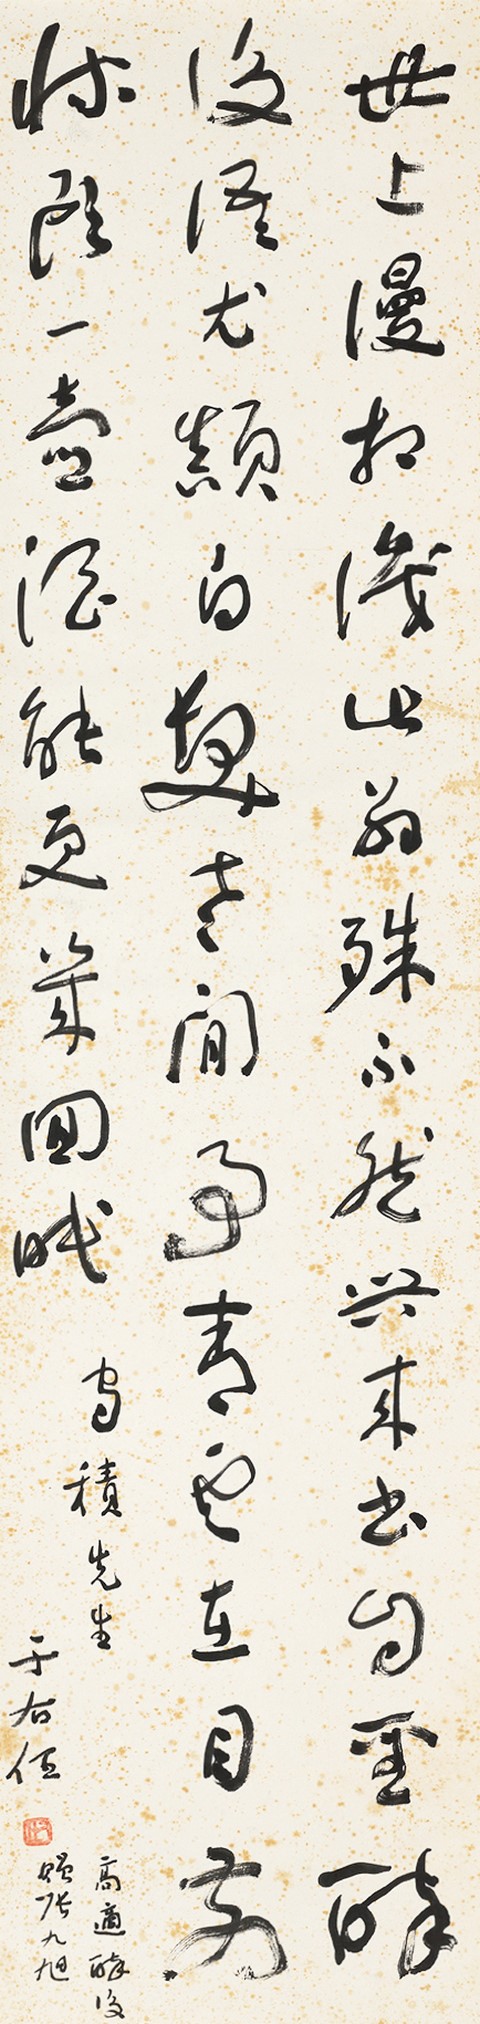 世上漫相識此翁殊不然興來書自聖醉
後語尤顛白髮老閒事青雲在目前
牀頭一壺酒能更幾回眠
守積先生
于右任
高適醉後
贈張九旭